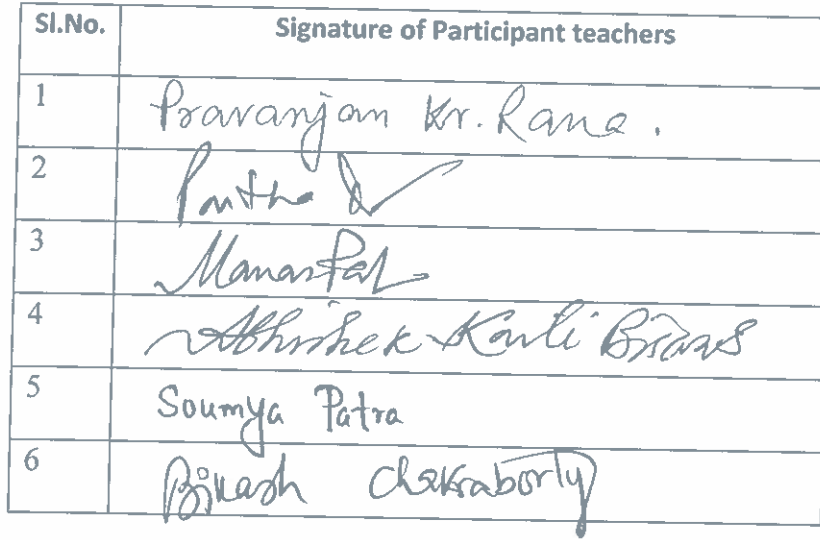 Sl.No. Signature of Participant teachers
1 Pravanjan Kr. Rana.
2 Partha
3 Manas Pal
4 Abhishek Biswas
5 Soumya Patra
6 Bikash Chakraborty